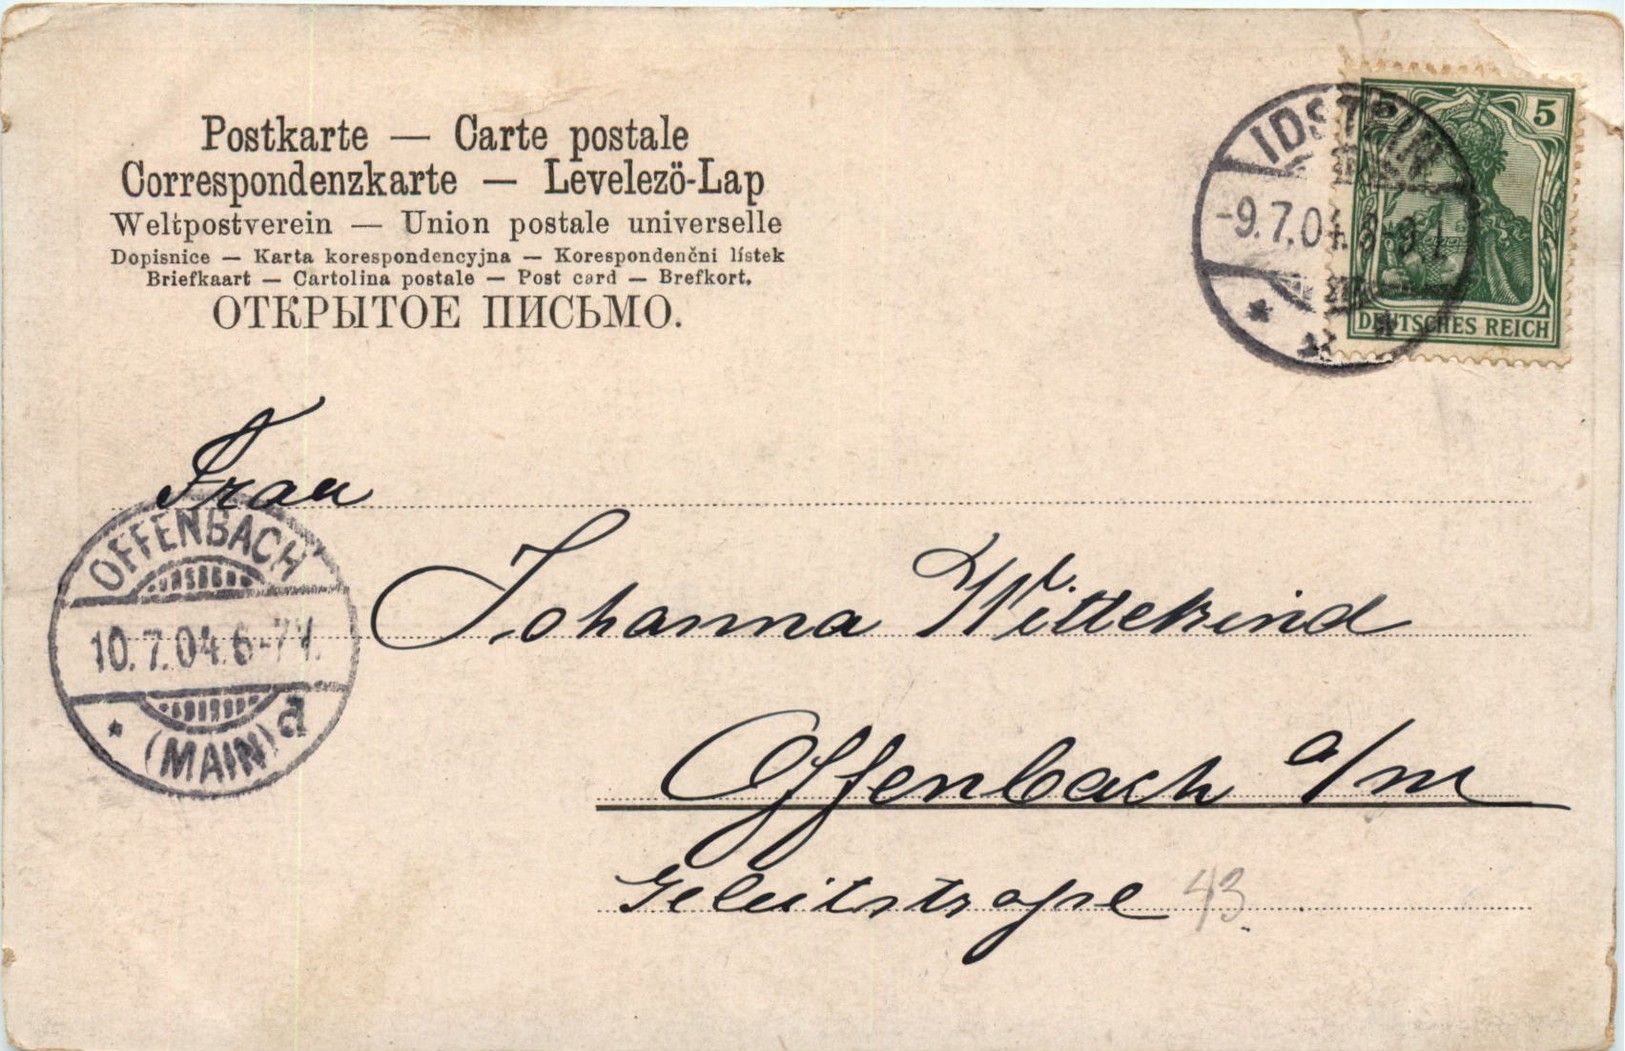 Postkarte — Carte postale
Correspondenzkarte — Levelezö-Lap
Weltpostverein — Union postale universelle
Dopisnice — Karta korespondencyjna — Korespondenčni lístek
Briefkaart — Cartolina postale — Post card — Brefkort.
ОТКРЫТОЕ ПИСЬМО.
5
DEUTSCHES REICH
IDSTEIN
-9.7.04. 8-9
Frau
Johanna Wittekind
Offenbach a/M
Geleitstraße 43.
OFFENBACH
10.7.04. 6-7V.
* (MAIN) d